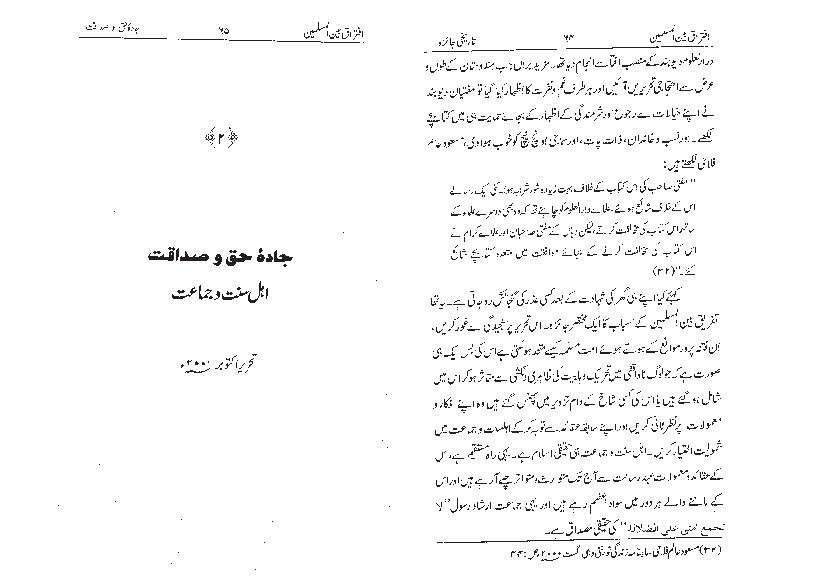 افتراق بین المسلمین ۶۴ تاریخی جائزہ
دارالعلوم دیوبند کے منصب افتا سے انجام دیا تھا۔ مزید برآں جب ہندوستان کے طول و
عرض سے احتجاجی تحریریں آئیں اور ہر طرف غم و نفرت کا اظہار کیا گیا تو مفتیان دیوبند
نے اپنے خیالات سے رجوع اور شرمندگی کے اظہار کے بجائے حمایت ہی میں کتابچے
لکھے۔ اور نسب و خاندان، ذات پات، اور سماجی اونچ نیچ کو خوب ہوا دی، مسعود عالم
فلاحی لکھتے ہیں:
"مفتی صاحب کی اس کتاب کے خلاف بہت زیادہ شور شرابہ ہوا۔ کئی ایک رسالے
اس کے خلاف شائع ہوئے۔ علمائے دارالعلوم کو چاہئے تھا کہ وہ بھی دوسرے علماء کے
ساتھ اس کتاب کی مخالفت کرتے، لیکن وہاں کے مفتی صاحبان اور علمائے کرام نے
اس کتاب کی مخالفت کرنے کے بجائے موافقت میں متعدد کتابچے شائع
کئے۔" (۳۲)
کہئے کیا اپنے ہی گھر کی شہادت کے بعد کسی عذر کی گنجائش رہ جاتی ہے۔ یہ تھا
تفریق بین المسلمین کے اسباب کا ایک مختصر جائزہ۔ اس تحریر پر سنجیدگی سے غور کریں،
ان فتنہ پرور مواقع کے ہوتے ہوئے امت مسلمہ کیسے متحد ہو سکتی ہے اس کی بس ایک ہی
صورت ہے کہ جو لوگ ناواقفی میں تحریک وہابیت کی ظاہری دلکشی سے متاثر ہو کر اس میں
شامل ہو گئے ہیں یا اس کی کسی شاخ کے دام تزویر میں پھنس گئے ہیں وہ اپنے افکار و
معمولات پر نظر ثانی کریں اور اپنے سابقہ عقائد سے توبہ کر کے اہلسنت و جماعت میں
شمولیت اختیار کریں۔ اہل سنت و جماعت ہی حقیقی اسلام ہے۔ یہی راہ مستقیم ہے، اس
کے عقائد و معمولات عہد رسالت سے آج تک متوارث و متواتر چلے آ رہے ہیں اور اس
کے ماننے والے ہر دور میں سواد اعظم رہے ہیں اور یہی جماعت ارشاد رسول "لا
تجمع امتی علی الضلالة" کی حقیقی مصداق ہے۔
(۳۲) مسعود عالم فلاحی، ماہنامہ زندگی نو، نئی دہلی اگست ۲۰۰۰ء، ص: ۴۴
افتراق بین المسلمین ۶۵ جادۂ حق و صداقت
﴿۲﴾
جادۂ حق و صداقت
اہل سنت و جماعت
تحریر اکتوبر ۲۰۰۱ء